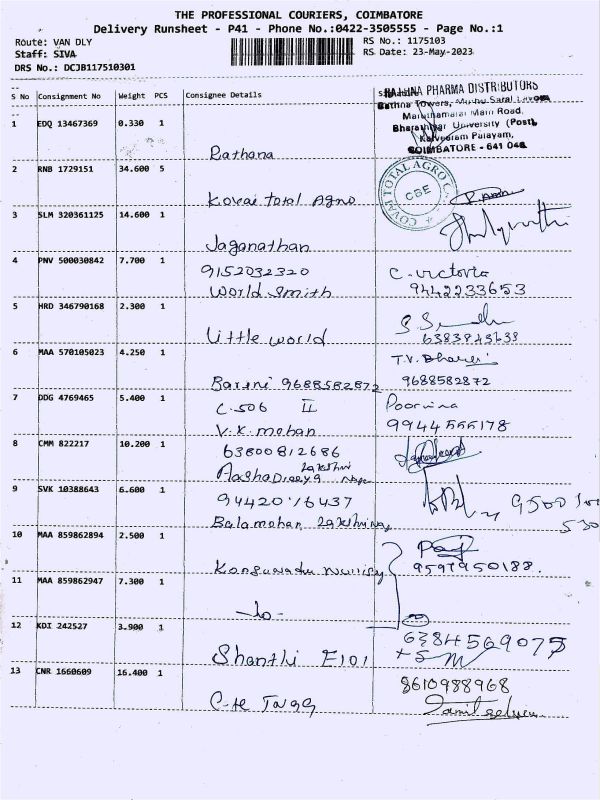 THE PROFESSIONAL COURIERS, COIMBATORE
Delivery Runsheet - P41 - Phone No.:0422-3505555 - Page No.:1
Route: VAN DLY
RS No.: 1175103
Staff: SIVA
RS Date: 23-May-2023
DRS No.: DCJB117510301
S No Consignment No Weight PCS Consignee Details
PHARMA DISTRIBUTORS
Maruthamalai Main Road,
Bharathiyar University (Post),
Kalveeram Palayam,
COIMBATORE - 641 046
1 EDQ 13467369 0.330 1
Rathana
2 RNB 1729151 34.600 5
Kovai Total Agno
KOVAI TOTAL AGRO
CBE
3 SLM 320361125 14.600 1
Jaganathan
4 PNV 500030842 7.700 1
9152032320
World Smith
C. Victoria
9442233653
5 HRD 346790168 2.300 1
Little world
6 MAA 570105023 4.250 1
Barini 9688582872
T.V. Bharani
9688582872
7 DDG 4769465 5.400 1
C-506 II
V.K. mohan
Poornima
9944555178
8 CMM 822217 10.200 1
63800812686
9 SVK 10388643 6.600 1
94420 16437
Balamohan
9500
530
10 MAA 859862894 2.500 1
9597950188.
11 MAA 859862947 7.300 1
12 KDI 242527 3.900 1
Shanthi E101
6384569075
13 CNR 1660609 16.400 1
8610988968
Tamilselvan